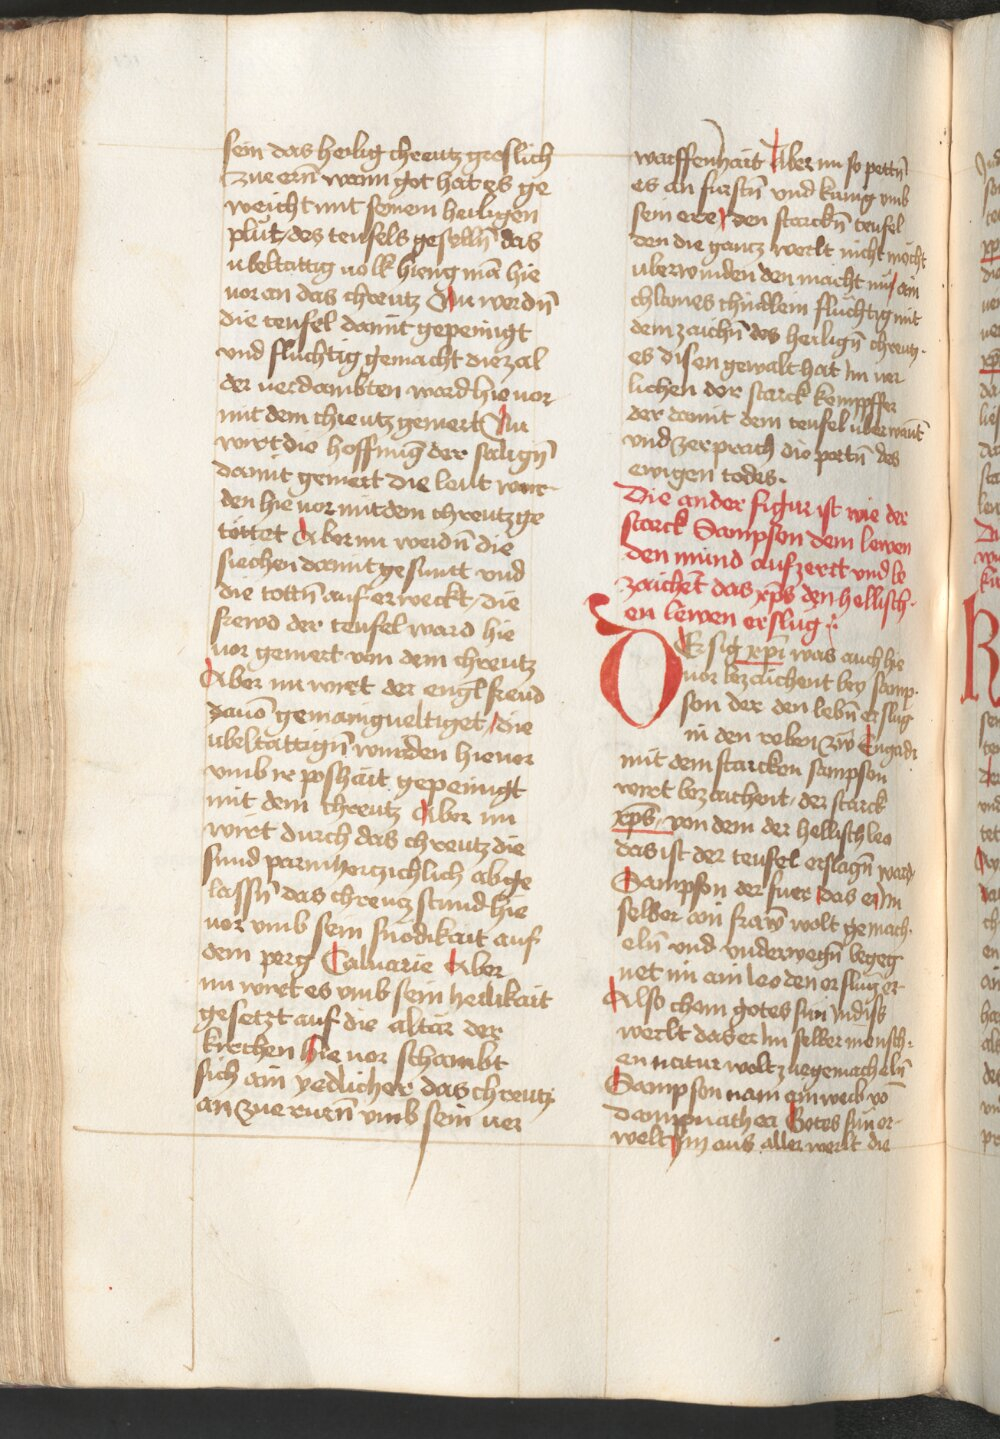 sein das heilig chreutz groslich
zue ern̄ wann got hat es ge
weicht mit seinem heiligen
plůt / des teufels geselln̄ das
ubeltattig uolk hieng mā hie
uor an das chreutz Nu werdn̄
die teufel damit gepeinigt
vnd fluchtig gemacht die zal
der uerdambten ward hie uor
mit dem chreutz gemert Nu
wirt die hoffnūg der salign̄
damit gemert die leut wur-
den hie uor mit dem chreutz ge
töttet Aber nu werdn̄ die
siechen damit gesuntt vnd
die tottn̄ auf erweckt / die
frewd der teufel ward hie
uor gemert von dem chreutz
Aber nu wirt der engl freud
dauō gemanigueltiget / die
ubeltattign̄ wurden hie uor
vmb ir poshait gepeinigt
mit dem chreutz Aber nu
wirt durch das chreutz die
sund parmherczichlich abge
lassn̄ das chreucz stund hie
uor vmb sein snödikait auf
dem perg Caluarie Aber
nu wirt es vmb sein heilikait
gesetzt auf die altar der
kirchen Hie uor schambt
sich ain yedlicher das chreutz
an zue ruen̄ vmb sein uer
warffenhait Aber nu so pettn̄
es an furstn̄ vnd kunig vmb
sein ere / den starckn̄ teufel
den die gantz werlt nicht mocht
uberwinden den macht nu / ain
chlaines chindlein fluchtig mit
dem zaichn̄ des heilign̄ chreutz.
es disen gewalt hat im uer
lichen der starck kempffer
der damit dem teufel uberwant
vnd zerprach die portn̄ des
ewigen todes.
Die ander figur ist wie der
starck Sampson dem lewen
den mund aufzerrt vnd be
zaichet das xp̄s den hellisch-
en lewen erslug :
DEr sig xp̄i was auch hie
uor bezaichent bey samp-
son der den lebn̄ erslug
in den reben zw̄ Engadi
mit dem starcken sampson
wirt bezaichent / der starck
xp̄s / von dem der hellisch leo
das ist der teufel erslagn̄ ward
Sampson der fuer das er Im
selber ain fraw̄ wolt gemach-
eln̄ vnd vnderwegn̄ begeg
net im ain leo den er slūg er
Also chom gotes sun In diss
werlt das er Im selber mensch-
en natur wolt zuegemacheln̄
Sampson nam ein weib vō
dampnathea Gotes sun er-
welt Im aus aller werlt die